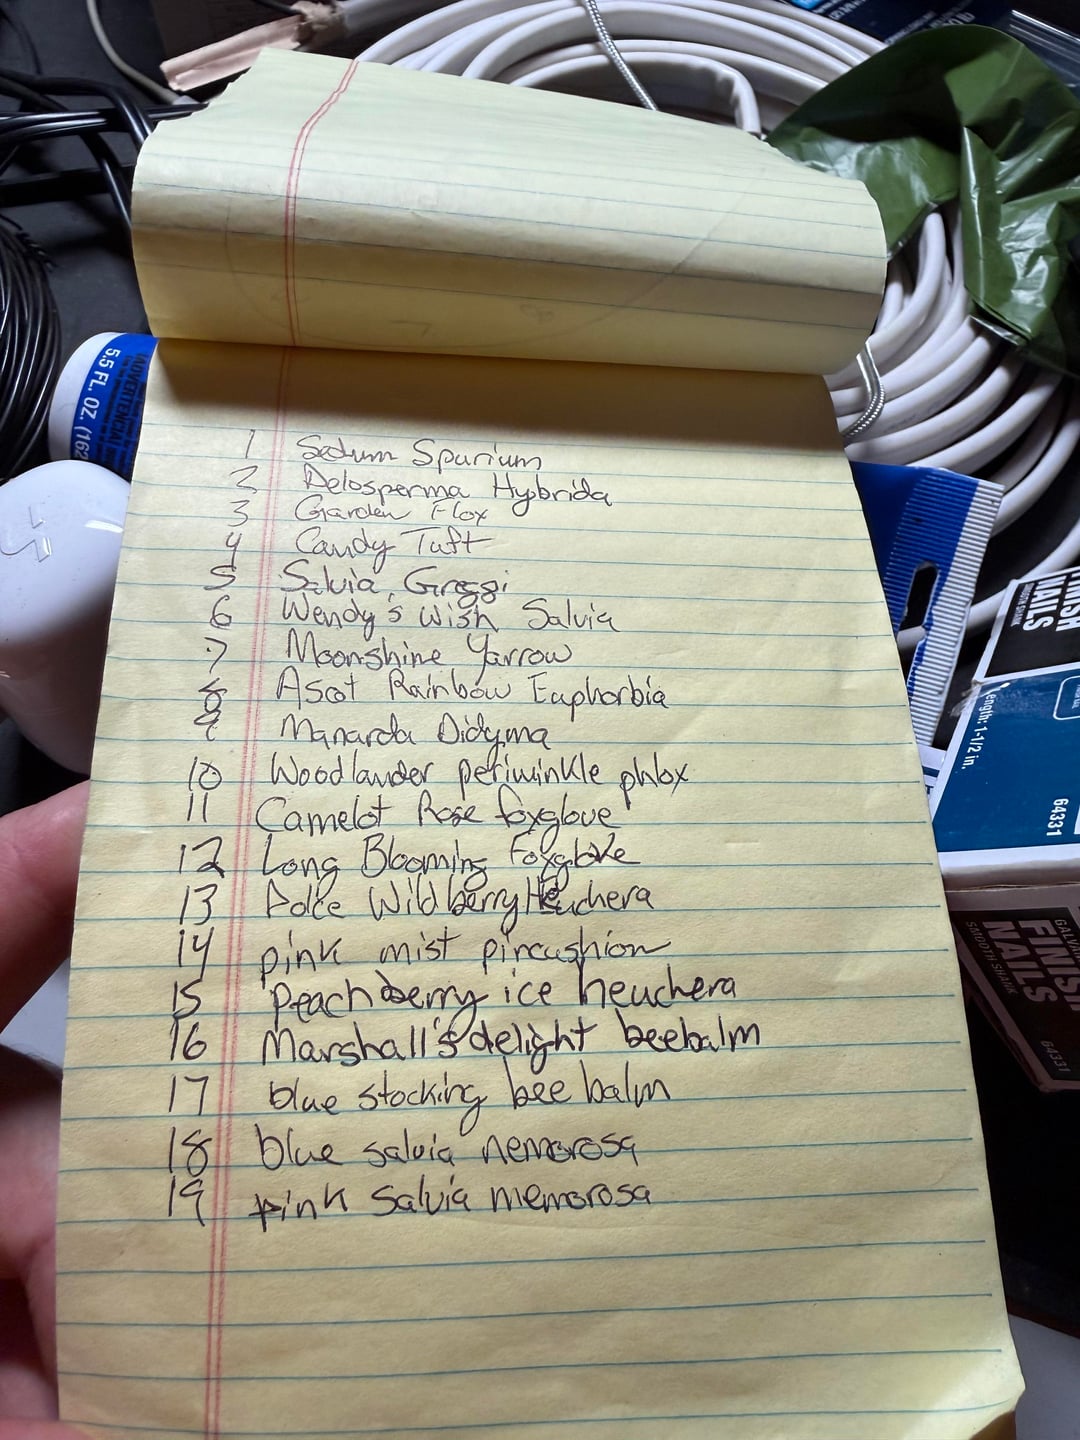 5.5 FL. OZ. (162
(ADVERTENCIA)
1 Sedum Spurium
2 Delosperma Hybrida
3 Garden Flox
4 Candy Tuft
5 Salvia, Greggi
6 Wendy's Wish Salvia
7 Moonshine Yarrow
8 Ascot Rainbow Euphorbia
9 Manarda Didyma
10 Woodlander periwinkle phlox
11 Camelot Rose foxglove
12 Long Blooming Foxglove
13 Dolce Wildberry Heuchera
14 pink mist pincushion
15 peachberry ice heuchera
16 Marshall's delight beebalm
17 blue stocking bee balm
18 blue salvia nemorosa
19 pink Salvia memorosa
NAILS
Length: 1-1/2 in.
64331
FINISH
NAILS
SMOOTH SHANK
64331